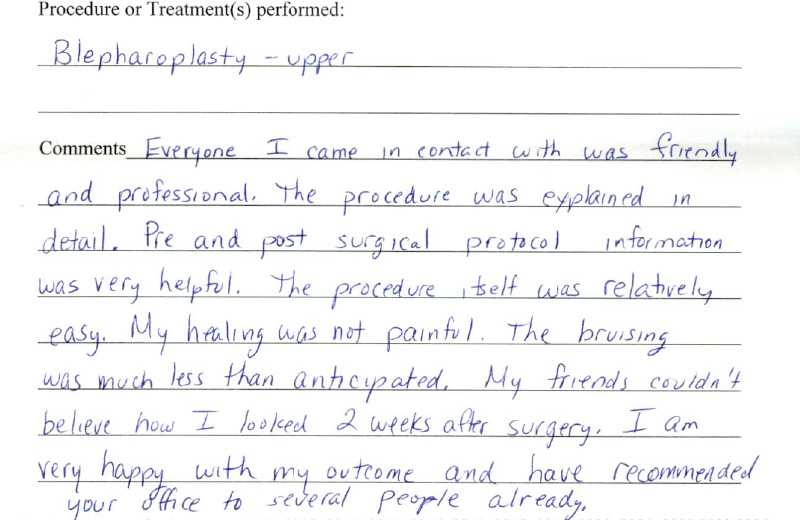 Procedure or Treatment(s) performed:
Blepharoplasty - upper
Comments Everyone I came in contact with was friendly
and professional. The procedure was explained in
detail. Pre and post surgical protocol information
was very helpful. The procedure itself was relatively
easy. My healing was not painful. The bruising
was much less than anticipated. My friends couldn't
believe how I looked 2 weeks after surgery. I am
very happy with my outcome and have recommended
your office to several people already.